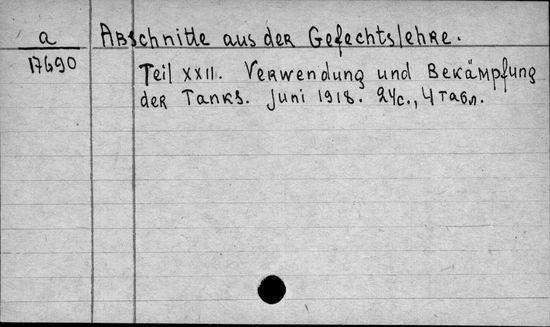 a Abschnitte aus der Gefechtslehre.
17490 Teil XXII. Verwendung und Bekämpfung
der Tanks. Juni 1918. 24с., 4 табл.